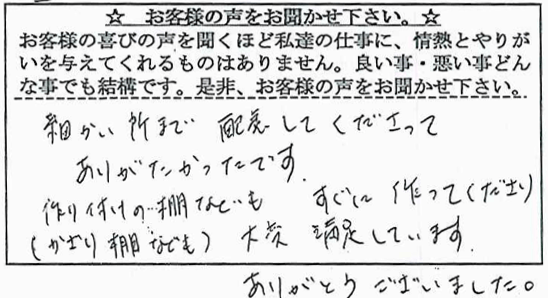 ☆ お客様の声をお聞かせ下さい。☆
お客様の喜びの声を聞くほど私達の仕事に、情熱とやりが
いを与えてくれるものはありません。良い事・悪い事どん
な事でも結構です。是非、お客様の声をお聞かせ下さい。
細かい所まで 配慮してくださって
ありがたかったです。
作り付けの棚なども すぐに 作ってくださり
(かざり棚なども) 大変 満足しています。
ありがとうございました。